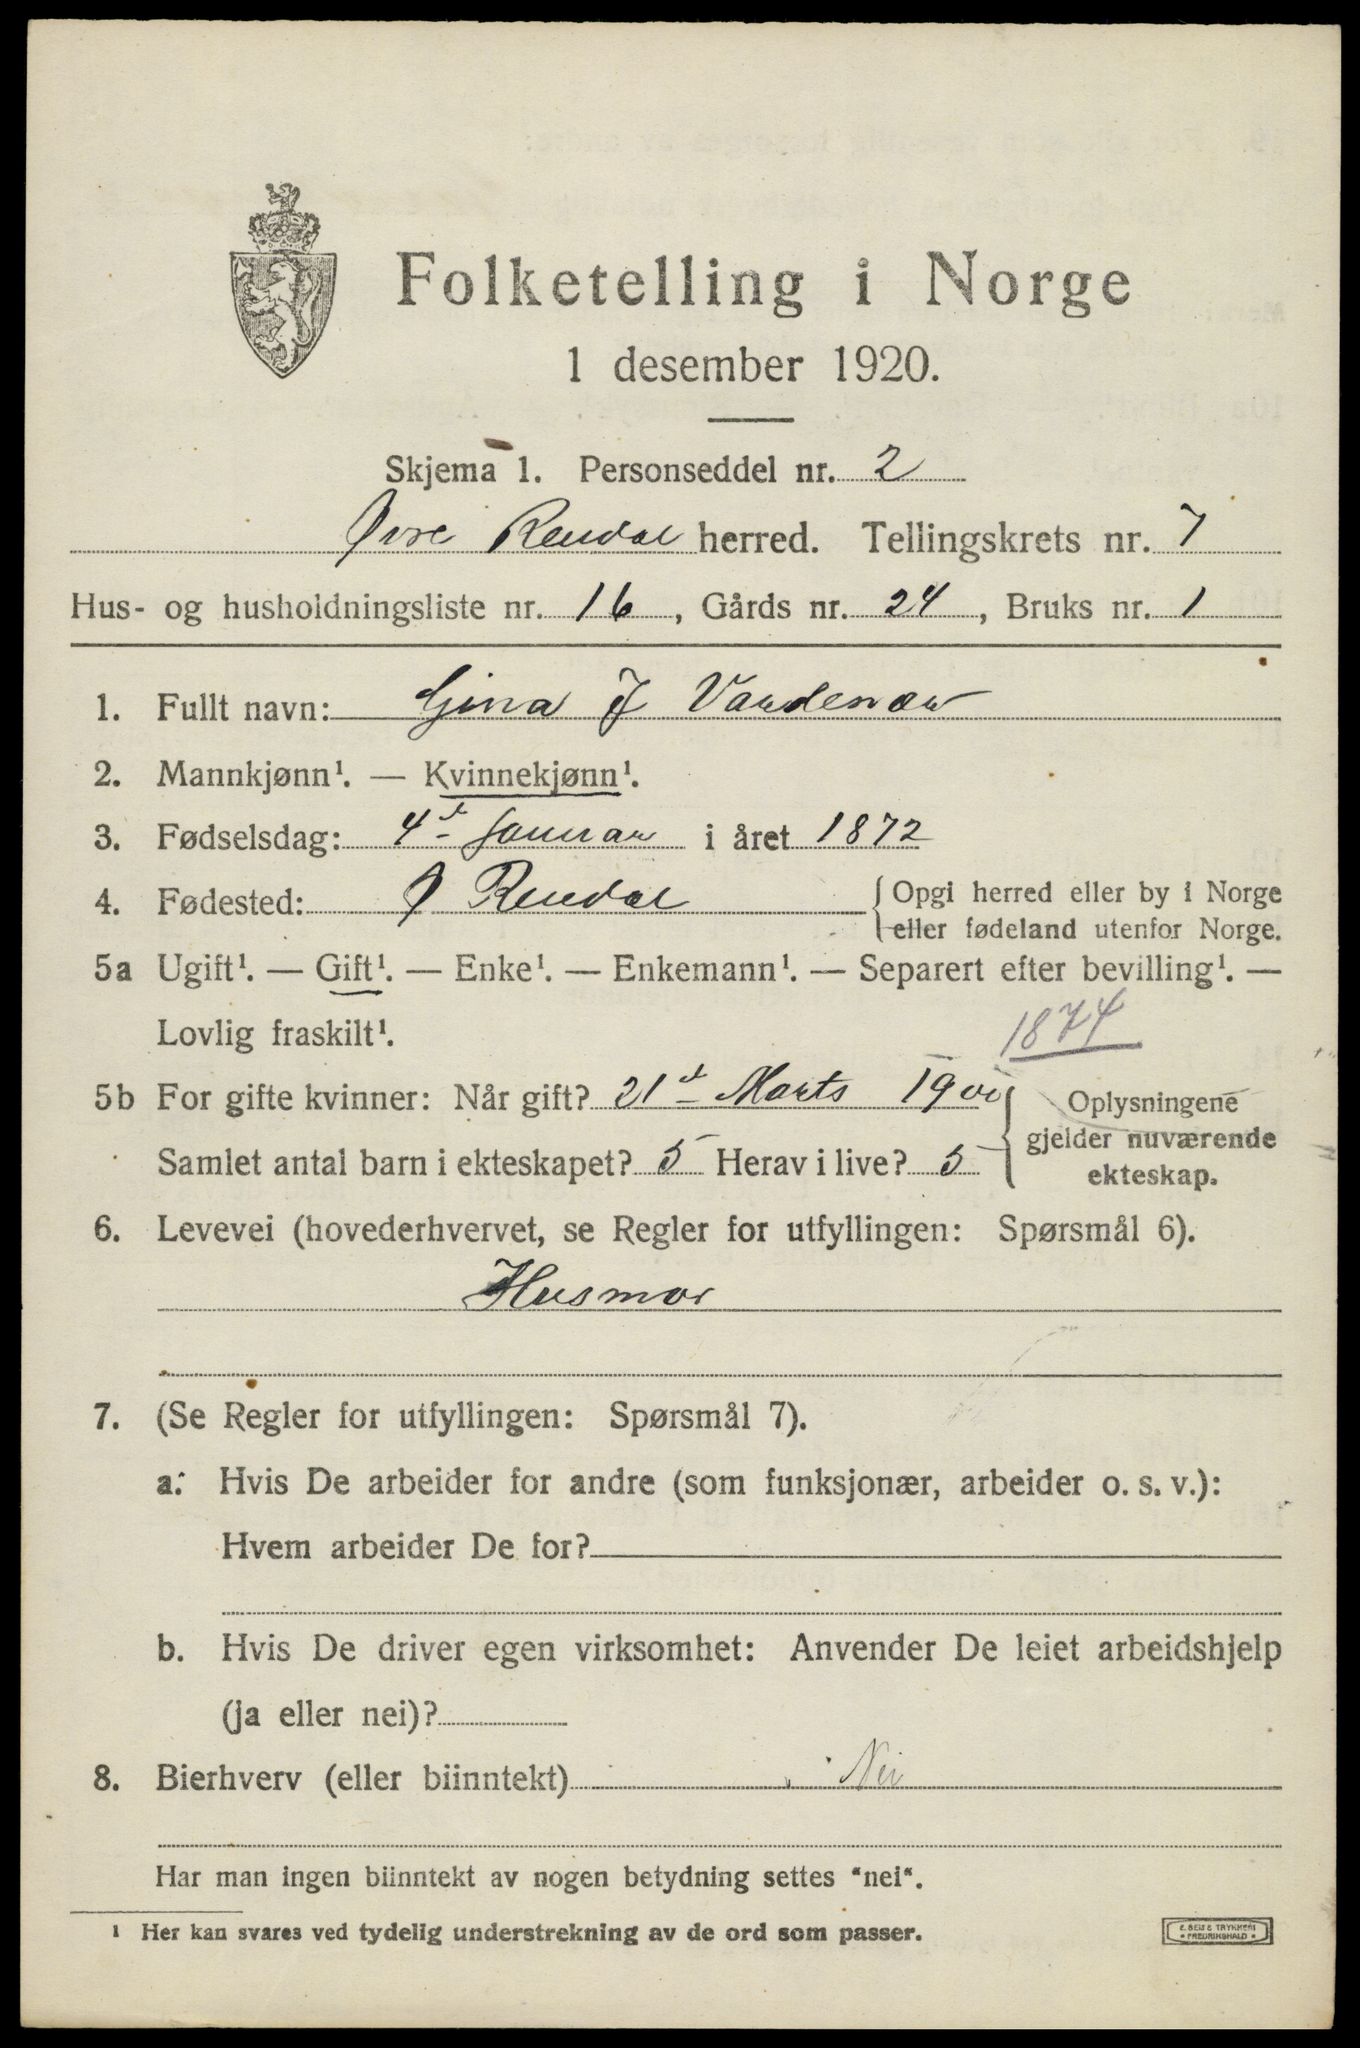 Folketelling i Norge
1 desember 1920.
Skjema 1. Personseddel nr. 2
Øvre Rendal herred. Tellingskrets nr. 7
Hus- og husholdningsliste nr. 16, Gårds nr. 24, Bruks nr. 1
1. Fullt navn: Gina J Vardenær
2. Mannkjønn¹. — Kvinnekjønn¹.
3. Fødselsdag: 4de Januar i året 1872
4. Fødested: Ø Rendal {Opgi herred eller by i Norge
eller fødeland utenfor Norge.
5a Ugift¹. — Gift¹. — Enke¹. — Enkemann¹. — Separert efter bevilling¹. —
Lovlig fraskilt¹.
1874
5b For gifte kvinner: Når gift? 21de Marts 1900
Samlet antal barn i ekteskapet? 5 Herav i live? 5
Oplysningene
gjelder nuværende
ekteskap.
6. Levevei (hovederhvervet, se Regler for utfyllingen: Spørsmål 6).
Husmor
7. (Se Regler for utfyllingen: Spørsmål 7).
a: Hvis De arbeider for andre (som funksjonær, arbeider o. s. v.):
Hvem arbeider De for?
b. Hvis De driver egen virksomhet: Anvender De leiet arbeidshjelp
(ja eller nei)?
8. Bierhverv (eller biinntekt) Nei
Har man ingen biinntekt av nogen betydning settes "nei".
¹ Her kan svares ved tydelig understrekning av de ord som passer.
E. SEIJS TRYKKERI
* FREDRIKSHALD *